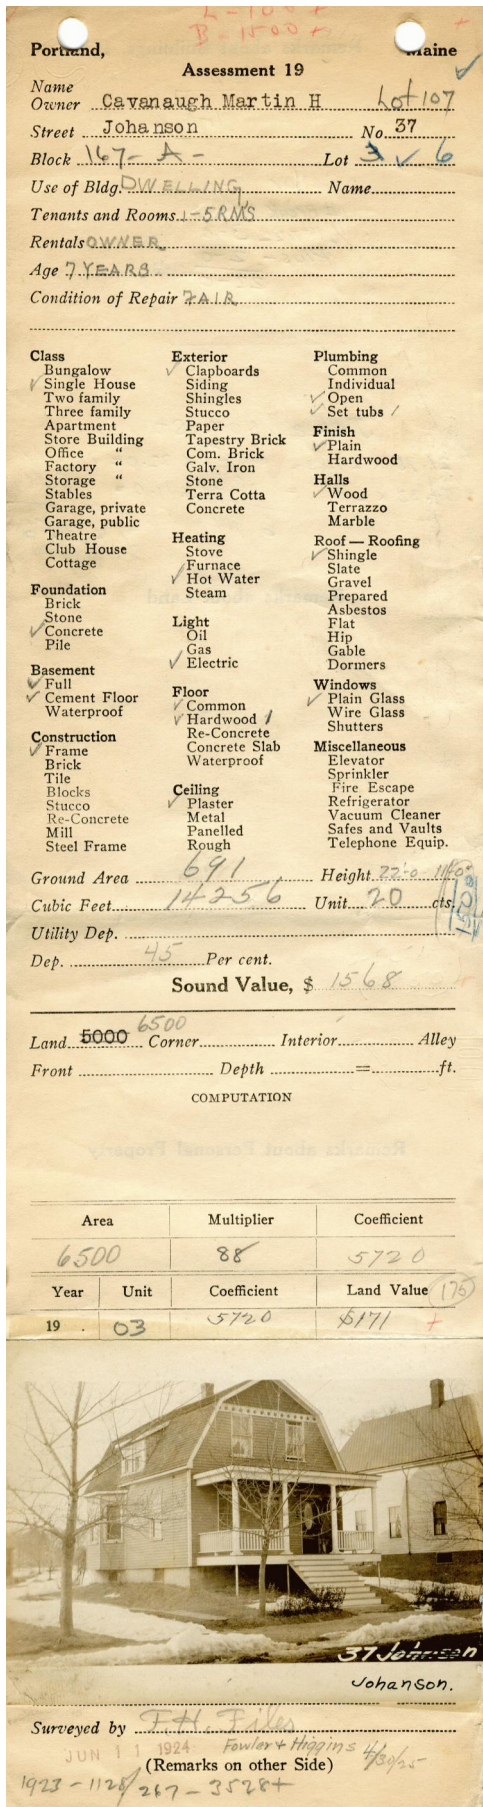 L - 100 +
B - 1500 +
Portland, Maine
Assessment 19
Name
Owner Cavanaugh Martin H Lot 107
Street Johanson No. 37
Block 167 - A - Lot 3 6
Use of Bldg. DWELLING Name
Tenants and Rooms 1-5 RMS
Rentals OWNER
Age 7 YEARS
Condition of Repair FAIR
Class
Bungalow
Single House
Two family
Three family
Apartment
Store Building
Office "
Factory "
Storage "
Stables
Garage, private
Garage, public
Theatre
Club House
Cottage
Foundation
Brick
Stone
Concrete
Pile
Basement
Full
Cement Floor
Waterproof
Construction
Frame
Brick
Tile
Blocks
Stucco
Re-Concrete
Mill
Steel Frame
Exterior
Clapboards
Siding
Shingles
Stucco
Paper
Tapestry Brick
Com. Brick
Galv. Iron
Stone
Terra Cotta
Concrete
Heating
Stove
Furnace
Hot Water
Steam
Light
Oil
Gas
Electric
Floor
Common
Hardwood 1
Re-Concrete
Concrete Slab
Waterproof
Ceiling
Plaster
Metal
Panelled
Rough
Plumbing
Common
Individual
Open
Set tubs 1
Finish
Plain
Hardwood
Halls
Wood
Terrazzo
Marble
Roof — Roofing
Shingle
Slate
Gravel
Prepared
Asbestos
Flat
Hip
Gable
Dormers
Windows
Plain Glass
Wire Glass
Shutters
Miscellaneous
Elevator
Sprinkler
Fire Escape
Refrigerator
Vacuum Cleaner
Safes and Vaults
Telephone Equip.
Ground Area 691 Height 22'-0
Cubic Feet 14256 Unit 20 cts.
Utility Dep.
Dep. 45 Per cent.
Sound Value, $ 1568
6500
Land 5000 Corner Interior Alley
Front Depth = ft.
COMPUTATION
Area Multiplier Coefficient
6500 88 5720
Year Unit Coefficient Land Value 175
19 . 03 5720 $171 +
37 Johnson
Johanson.
Surveyed by F. H. Files
JUN 11 1924 Fowler + Higgins 4/30/25
(Remarks on other Side)
1923 - 1128/267 - 3528+